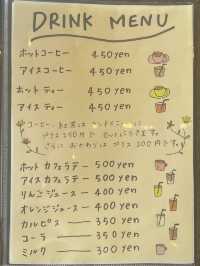 DRINK MENU
ホットコーヒー 450yen
アイスコーヒー 450yen
ホット ティー 450yen
アイス ティー 450yen
コーヒー、
プラス
さらに おかわりは プラス 200円 です。
ホット カフェラテ ー 500yen
アイス カフェラテ ー 500yen
りんごジュース ー 400yen
オレンジジュース ー 400yen
カルピス ー 350yen
コーラ ー 350yen
ミルク ー 300yen